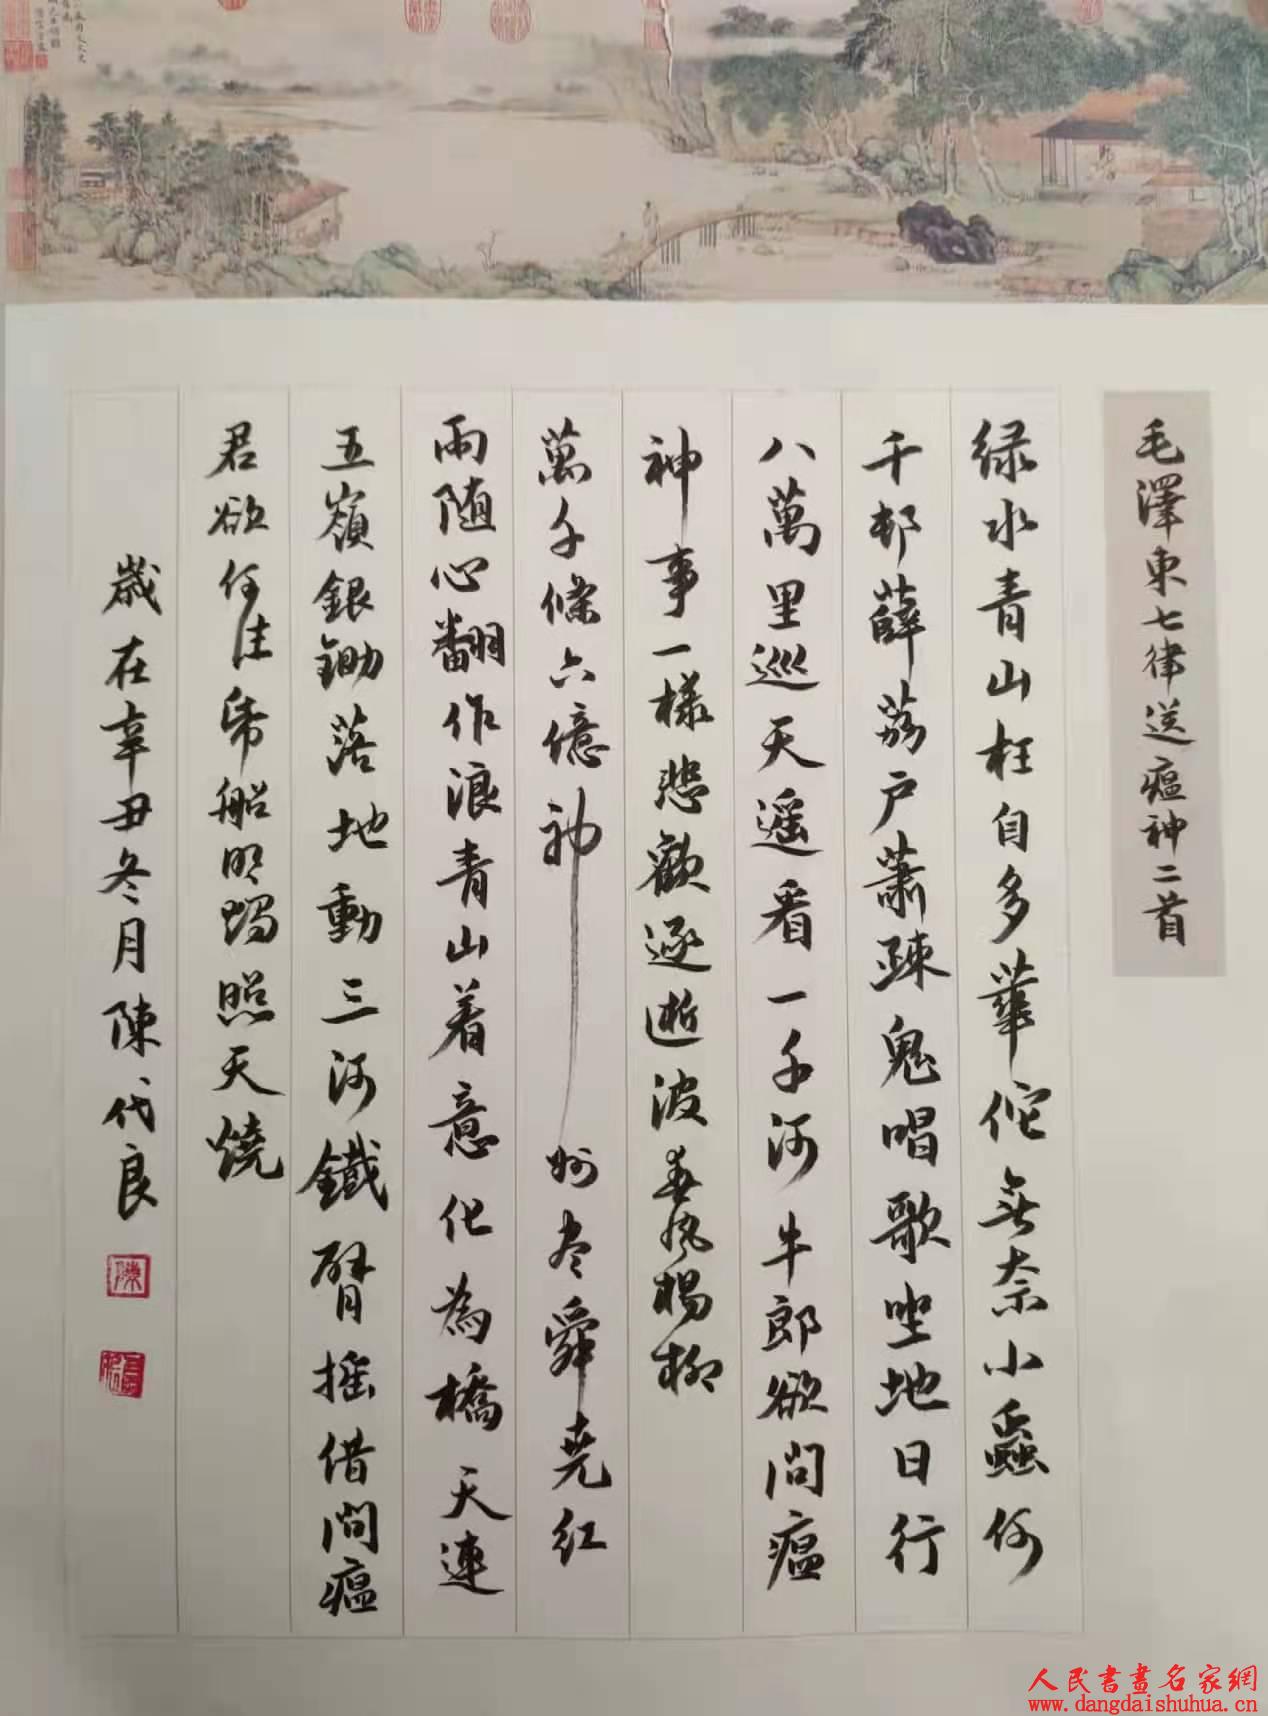 毛澤東七律送瘟神二首
绿水青山枉自多華佗無奈小蟲何
千邨薜荔户蕭疎鬼唱歌坐地日行
八萬里巡天遥看一千河牛郎欲問瘟
神事一樣悲歡逐逝波春风楊柳
萬千條六億神州尽舜尭红
雨随心翻作浪青山着意化為橋天連
五嶺銀鋤落地動三河鐵臂摇借問瘟
君欲何往帋船明燭照天燒
歲在辛丑冬月陳代良
陳
人民書畫名家網
www.dangdaishuhua.cn